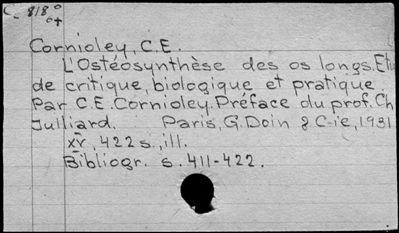 C-818°
o+
Cornioley, C.E.
L'Ostéosynthèse des os longs. Etu
de critique, biologique et pratique.
Par C.E. Cornioley. Préface du prof. Ch
Julliard. Paris, G. Doin & C-ie, 1931
XV, 422 s., ill.
Bibliogr. s. 411-422.